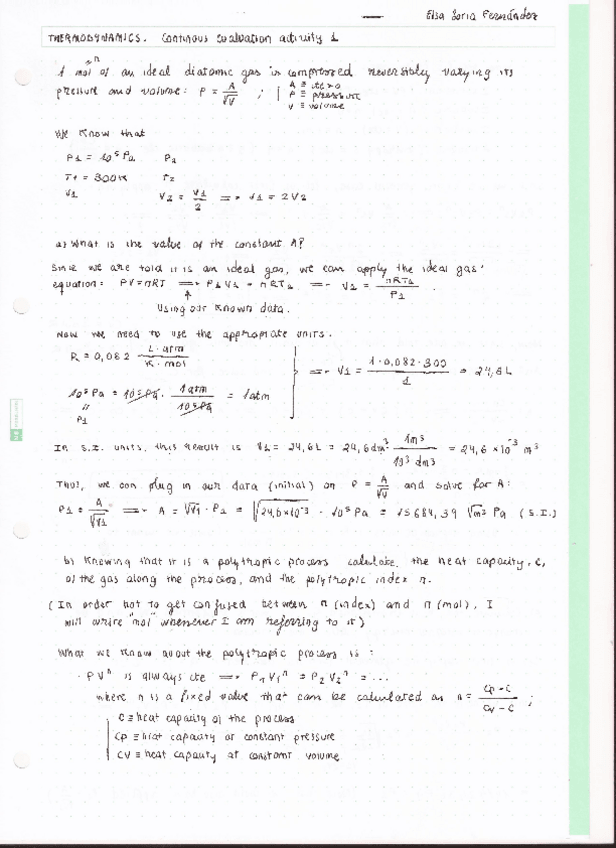 Elsa Soria Fernández
THERMODYNAMICS. Continous evaluation activity 1
1 mol of an ideal diatomic gas is compressed reversibly varying its
n
pressure and volume: P = A/√V ; A ≡ cte > 0
P ≡ pressure
V ≡ volume
We know that
P1 = 10⁵ Pa P2
T1 = 300 K T2
V1 V2 = V1/2 ⇒ V1 = 2V2
a) What is the value of the constant A?
Since we are told it is an ideal gas, we can apply the ideal gas'
equation: PV = nRT ⇒ P1V1 = nRT1 ⇒ V1 = nRT1/P1 .
Using our known data.
Now we need to use the appropriate units.
R = 0,082 L·atm/K·mol
⇒ V1 = 1·0,082·300/1 = 24,6 L
10⁵ Pa = 10⁵ Pa · 1 atm/10⁵ Pa = 1 atm
"
P1
In S.I. units, this result is V1 = 24,6 L = 24,6 dm³ · 1m³/10³ dm³ = 24,6 × 10⁻³ m³
Thus, we can plug in our data (initial) on P = A/√V and solve for A:
P1 = A/√V1 ⇒ A = √V1 · P1 = √24,6×10⁻³ · 10⁵ Pa = 15684,39 √m³ Pa (S.I.)
b) Knowing that it is a polytropic process calculate the heat capacity, C,
of the gas along the process, and the polytropic index n.
(In order not to get confused between n (index) and n (mol), I
will write "mol" whenever I am referring to it)
What we know about the polytropic process is:
· PVⁿ is always cte ⇒ P1V1ⁿ = P2V2ⁿ = ...
where n is a fixed value that can be calculated as n = Cp - C/Cv - C ;
C ≡ heat capacity of the process
Cp ≡ heat capacity at constant pressure
CV ≡ heat capacity at constant volume